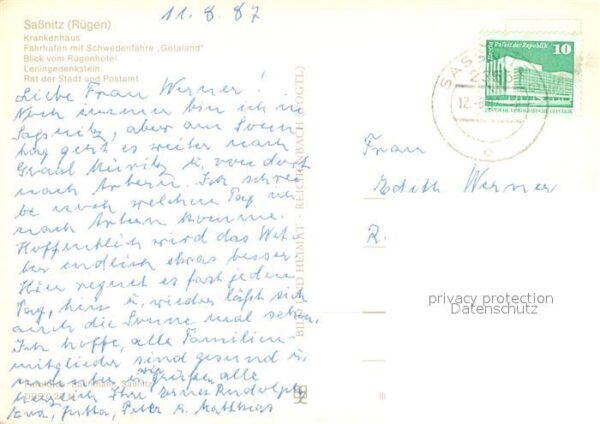 11.8.87
Saßnitz (Rügen)
Krankenhaus
Fährhafen mit Schwedenfähre „Götaland"
Blick vom Rügenhotel
Leningedenkstein
Rat der Stadt und Postamt
Liebe Frau Werner!
Noch immer bin ich in
Sassnitz, aber am Sonn
tag geht es weiter nach
Graal Müritz u. von dort
nach Artern. Ich schrei
be noch welchen Tag ich
nach Artern komme.
Hoffentlich wird das Wet
ter endlich etwas besser
Hier regnet es fast jeden
Tag, hin u. wieder läßt sich
auch die Sonne mal sehen.
Ich hoffe, alle Familien-
mitglieder sind gesund u.
munter wir grüßen alle
herzlich Ihre Rudolph
Jutta, Peter u. Matthias
BILD UND HEIMAT · REICHENBACH (VOGTL)
Palast der Republik
10
SASSNITZ
12.
Frau
Edith Werner
R.
privacy protection
Datenschutz